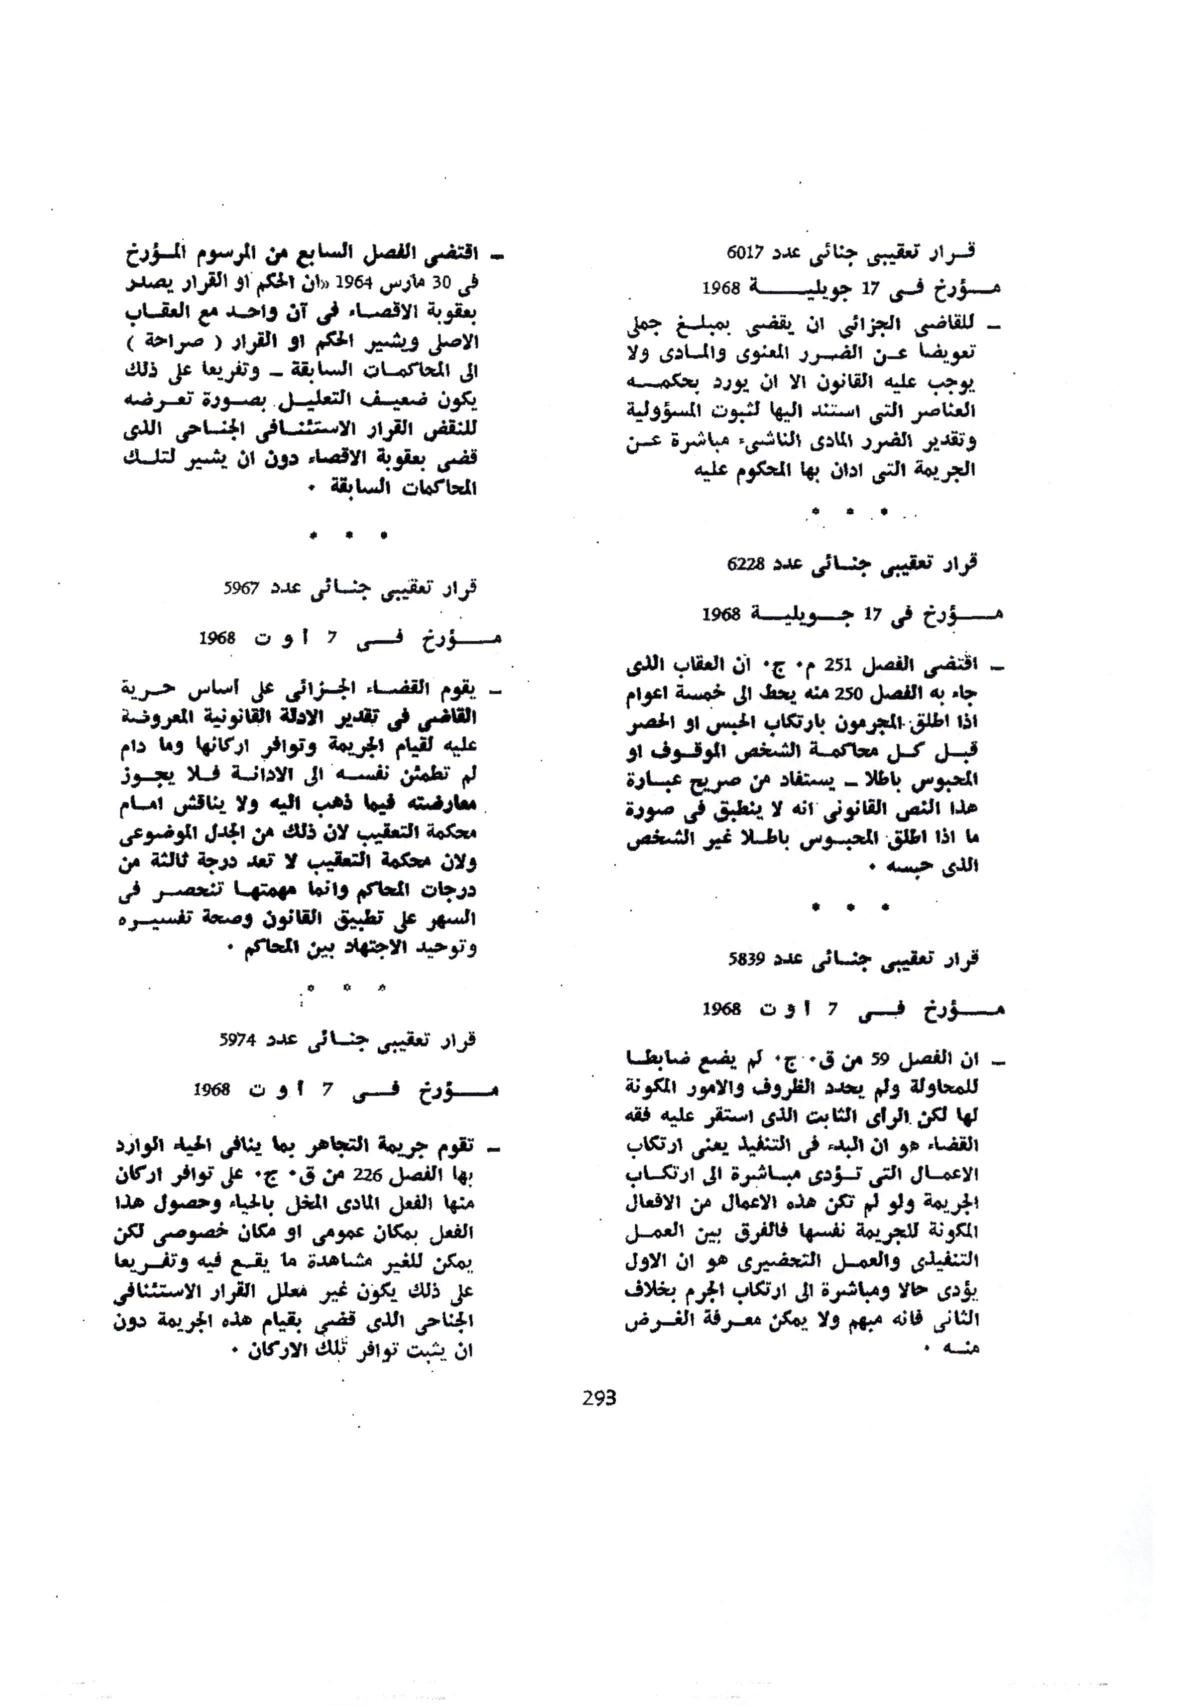 قرار تعقيبى جنائى عدد 6017
مؤرخ فى 17 جويلية 1968
ـ للقاضى الجزائى ان يقضى بمبلغ جملى
تعويضا عن الضرر المعنوى والمادى ولا
يوجب عليه القانون الا ان يورد بحكمه
العناصر التى استند اليها لثبوت المسؤولية
وتقدير الضرر المادى الناشىء مباشرة عن
الجريمة التى ادان بها المحكوم عليه
* * *
قرار تعقيبى جنائى عدد 6228
مؤرخ فى 17 جويلية 1968
ـ اقتضى الفصل 251 م. ج. ان العقاب الذى
جاء به الفصل 250 منه يحط الى خمسة اعوام
اذا اطلق المجرمون بارتكاب الحبس او الحصر
قبل كل محاكمة الشخص الموقوف او
المحبوس باطلا ـ يستفاد من صريح عبارة
هذا النص القانونى انه لا ينطبق فى صورة
ما اذا اطلق المحبوس باطلا غير الشخص
الذى حبسه .
* * *
قرار تعقيبى جنائى عدد 5839
مؤرخ فى 7 اوت 1968
ـ ان الفصل 59 من ق. ج. لم يضع ضابطا
للمحاولة ولم يحدد الظروف والامور المكونة
لها لكن الراى الثابت الذى استقر عليه فقه
القضاء هو ان البدء فى التنفيذ يعنى ارتكاب
الاعمال التى تؤدى مباشرة الى ارتكاب
الجريمة ولو لم تكن هذه الاعمال من الافعال
المكونة للجريمة نفسها فالفرق بين العمل
التنفيذى والعمل التحضيرى هو ان الاول
يؤدى حالا ومباشرة الى ارتكاب الجرم بخلاف
الثانى فانه مبهم ولا يمكن معرفة الغرض
منه .
ـ اقتضى الفصل السابع من المرسوم المؤرخ
فى 30 مارس 1964 «ان الحكم او القرار يصدر
بعقوبة الاقصاء فى آن واحد مع العقاب
الاصلى ويشير الحكم او القرار ( صراحة )
الى المحاكمات السابقة ـ وتفريعا على ذلك
يكون ضعيف التعليل بصورة تعرضه
للنقض القرار الاستئنافى الجناحى الذى
قضى بعقوبة الاقصاء دون ان يشير لتلك
المحاكمات السابقة .
* * *
قرار تعقيبى جنائى عدد 5967
مؤرخ فى 7 اوت 1968
ـ يقوم القضاء الجزائى على اساس حرية
القاضى فى تقدير الادلة القانونية المعروضة
عليه لقيام الجريمة وتوافر اركانها وما دام
لم تطمئن نفسه الى الادانة فلا يجوز
معارضته فيما ذهب اليه ولا يناقش امام
محكمة التعقيب لان ذلك من الجدل الموضوعى
ولان محكمة التعقيب لا تعد درجة ثالثة من
درجات المحاكم وانما مهمتها تنحصر فى
السهر على تطبيق القانون وصحة تفسيره
وتوحيد الاجتهاد بين المحاكم .
* * *
قرار تعقيبى جنائى عدد 5974
مؤرخ فى 7 اوت 1968
ـ تقوم جريمة التجاهر بما ينافى الحياء الوارد
بها الفصل 226 من ق. ج. على توافر اركان
منها الفعل المادى المخل بالحياء وحصول هذا
الفعل بمكان عمومى او مكان خصوصى لكن
يمكن للغير مشاهدة ما يقع فيه وتفريعا
على ذلك يكون غير معلل القرار الاستئنافى
الجناحى الذى قضى بقيام هذه الجريمة دون
ان يثبت توافر تلك الاركان .
293